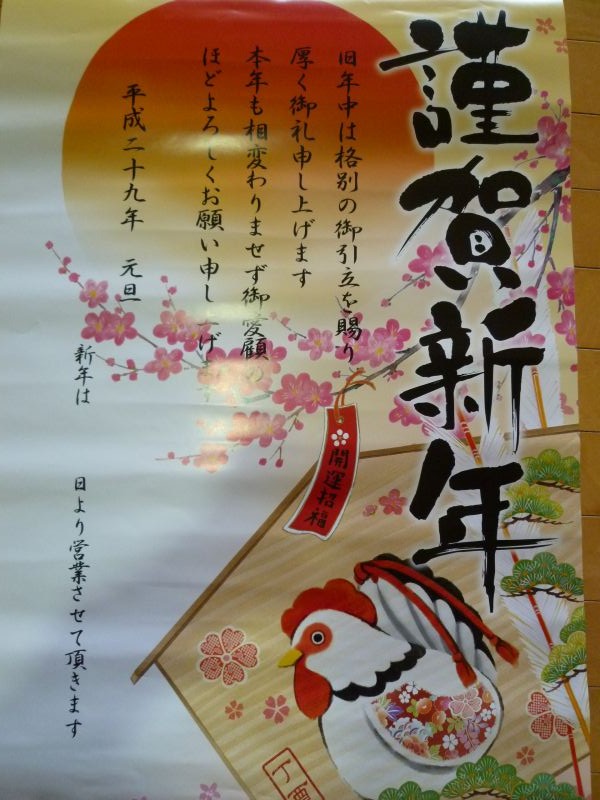 謹賀新年
旧年中は格別の御引立を賜り
厚く御礼申し上げます
本年も相変わりませず御愛顧の
ほどよろしくお願い申し上げます
平成二十九年 元旦
新年は 日より営業させて頂きます
開運招福
丁酉